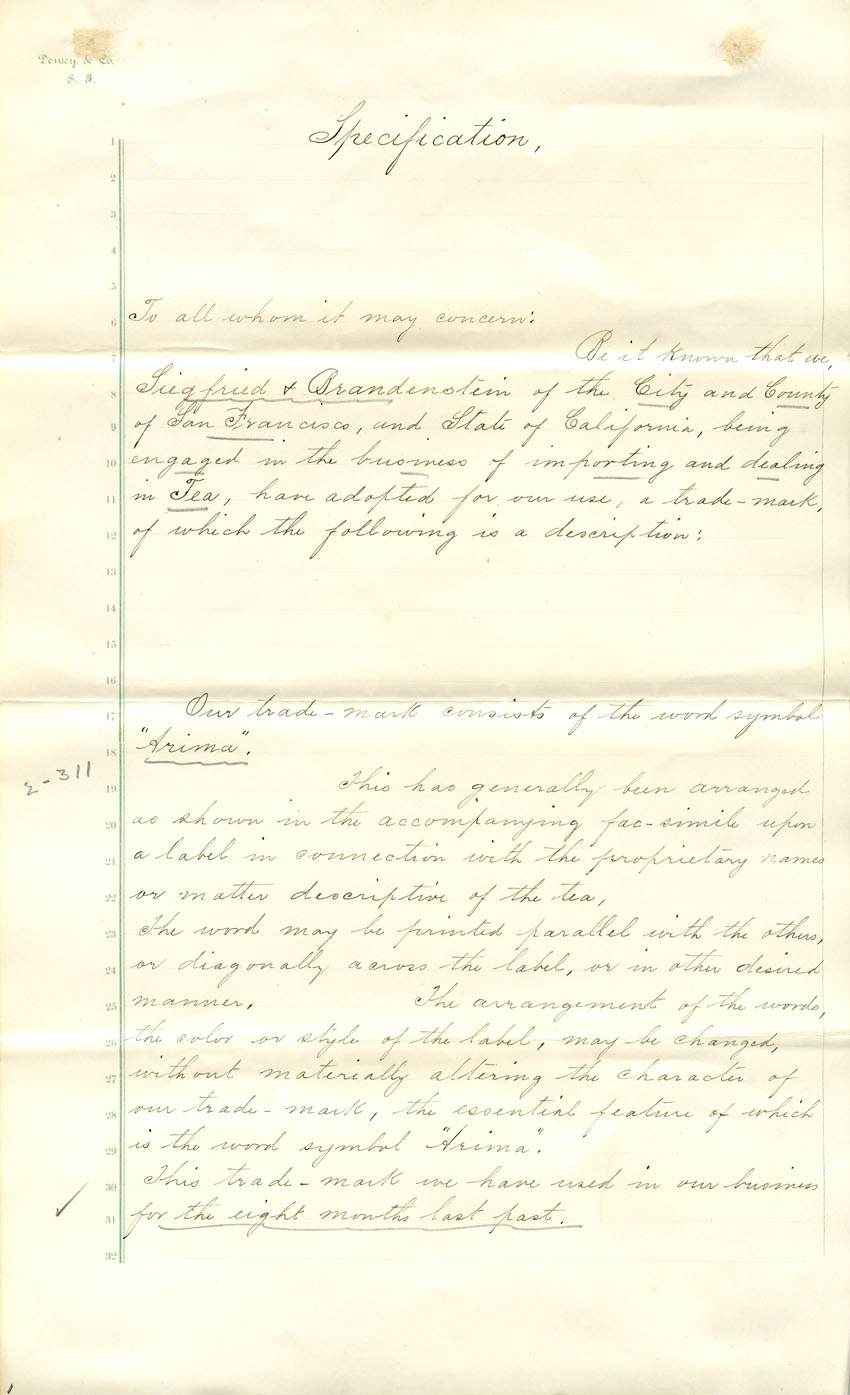 Dewey & Co.
S. F.
1 Specification,
2
3
4
5
6 To all whom it may concern:
7 Be it known that we,
8 Siegfried & Brandenstein of the City and County
9 of San Francisco, and State of California, being
10 engaged in the business of importing and dealing
11 in Tea, have adopted for our use, a trade-mark,
12 of which the following is a description:
13
14
15
16
17 Our trade-mark consists of the word symbol
18 "Arima".
2-311
19 This has generally been arranged
20 as shown in the accompanying fac-simile upon
21 a label in connection with the proprietary names
22 or matter descriptive of the tea,
23 The word may be printed parallel with the others,
24 or diagonally across the label, or in other desired
25 manner, The arrangement of the words,
26 the color or style of the label, may be changed,
27 without materially altering the character of
28 our trade-mark, the essential feature of which
29 is the word symbol "Arima".
30 This trade-mark we have used in our business
31 for the eight months last past.
32